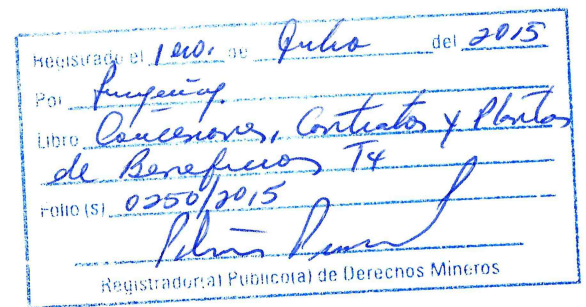 Registrado el 1ero. de Julio del 2015
Por
Libro Concesiones, Contratos y Plantas
de Beneficios T4
Folio (s) 0250/2015
Registrador(a) Publico(a) de Derechos Mineros